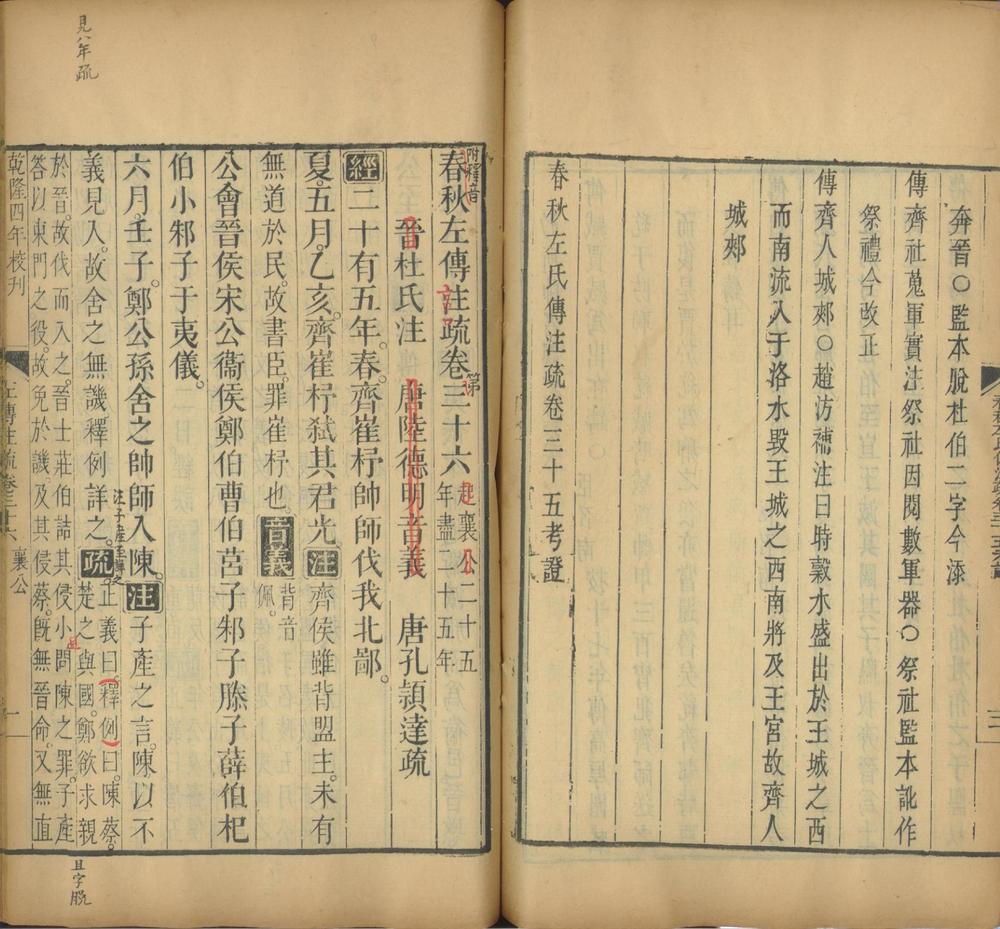 奔晉○監本脫杜伯二字今添
傳齊社蒐軍實注祭社因閱數軍器○祭社監本訛作
祭禮今改正
傳齊人城郟○趙汸補注曰時穀水盛出於王城之西
而南流入于洛水毀王城之西南將及王宮故齊人
城郟
春秋左氏傳注疏卷三十五考證
附釋音
春秋左傳注疏卷第三十六
起襄公二十五
年盡二十五年
晉杜氏注 唐陸德明音義 唐孔穎達疏
經二十有五年春齊崔杼帥師伐我北鄙。
夏。五月。乙亥。齊崔杼弒其君光。注齊侯雖背盟主。未有
無道於民。故書臣。罪崔杼也。音義
背音
佩。
公會晉侯宋公衞侯鄭伯曹伯莒子邾子滕子薛伯杞
伯小邾子于夷儀。
六月。壬子。鄭公孫舍之帥師入陳。注子產之言。陳以不
義見入。故舍之無譏釋例詳之。疏
正義曰。釋例曰。陳蔡。
楚之與國。鄭欲求親
於晉。故伐而入之。晉士莊伯詰其侵小。問陳之罪。子產
答以東門之役。故免於譏。及其侵蔡。旣無晉命。又無直
乾隆四年校刊
左傳注疏卷三十六 襄公
一
見八年疏
且
且字脫